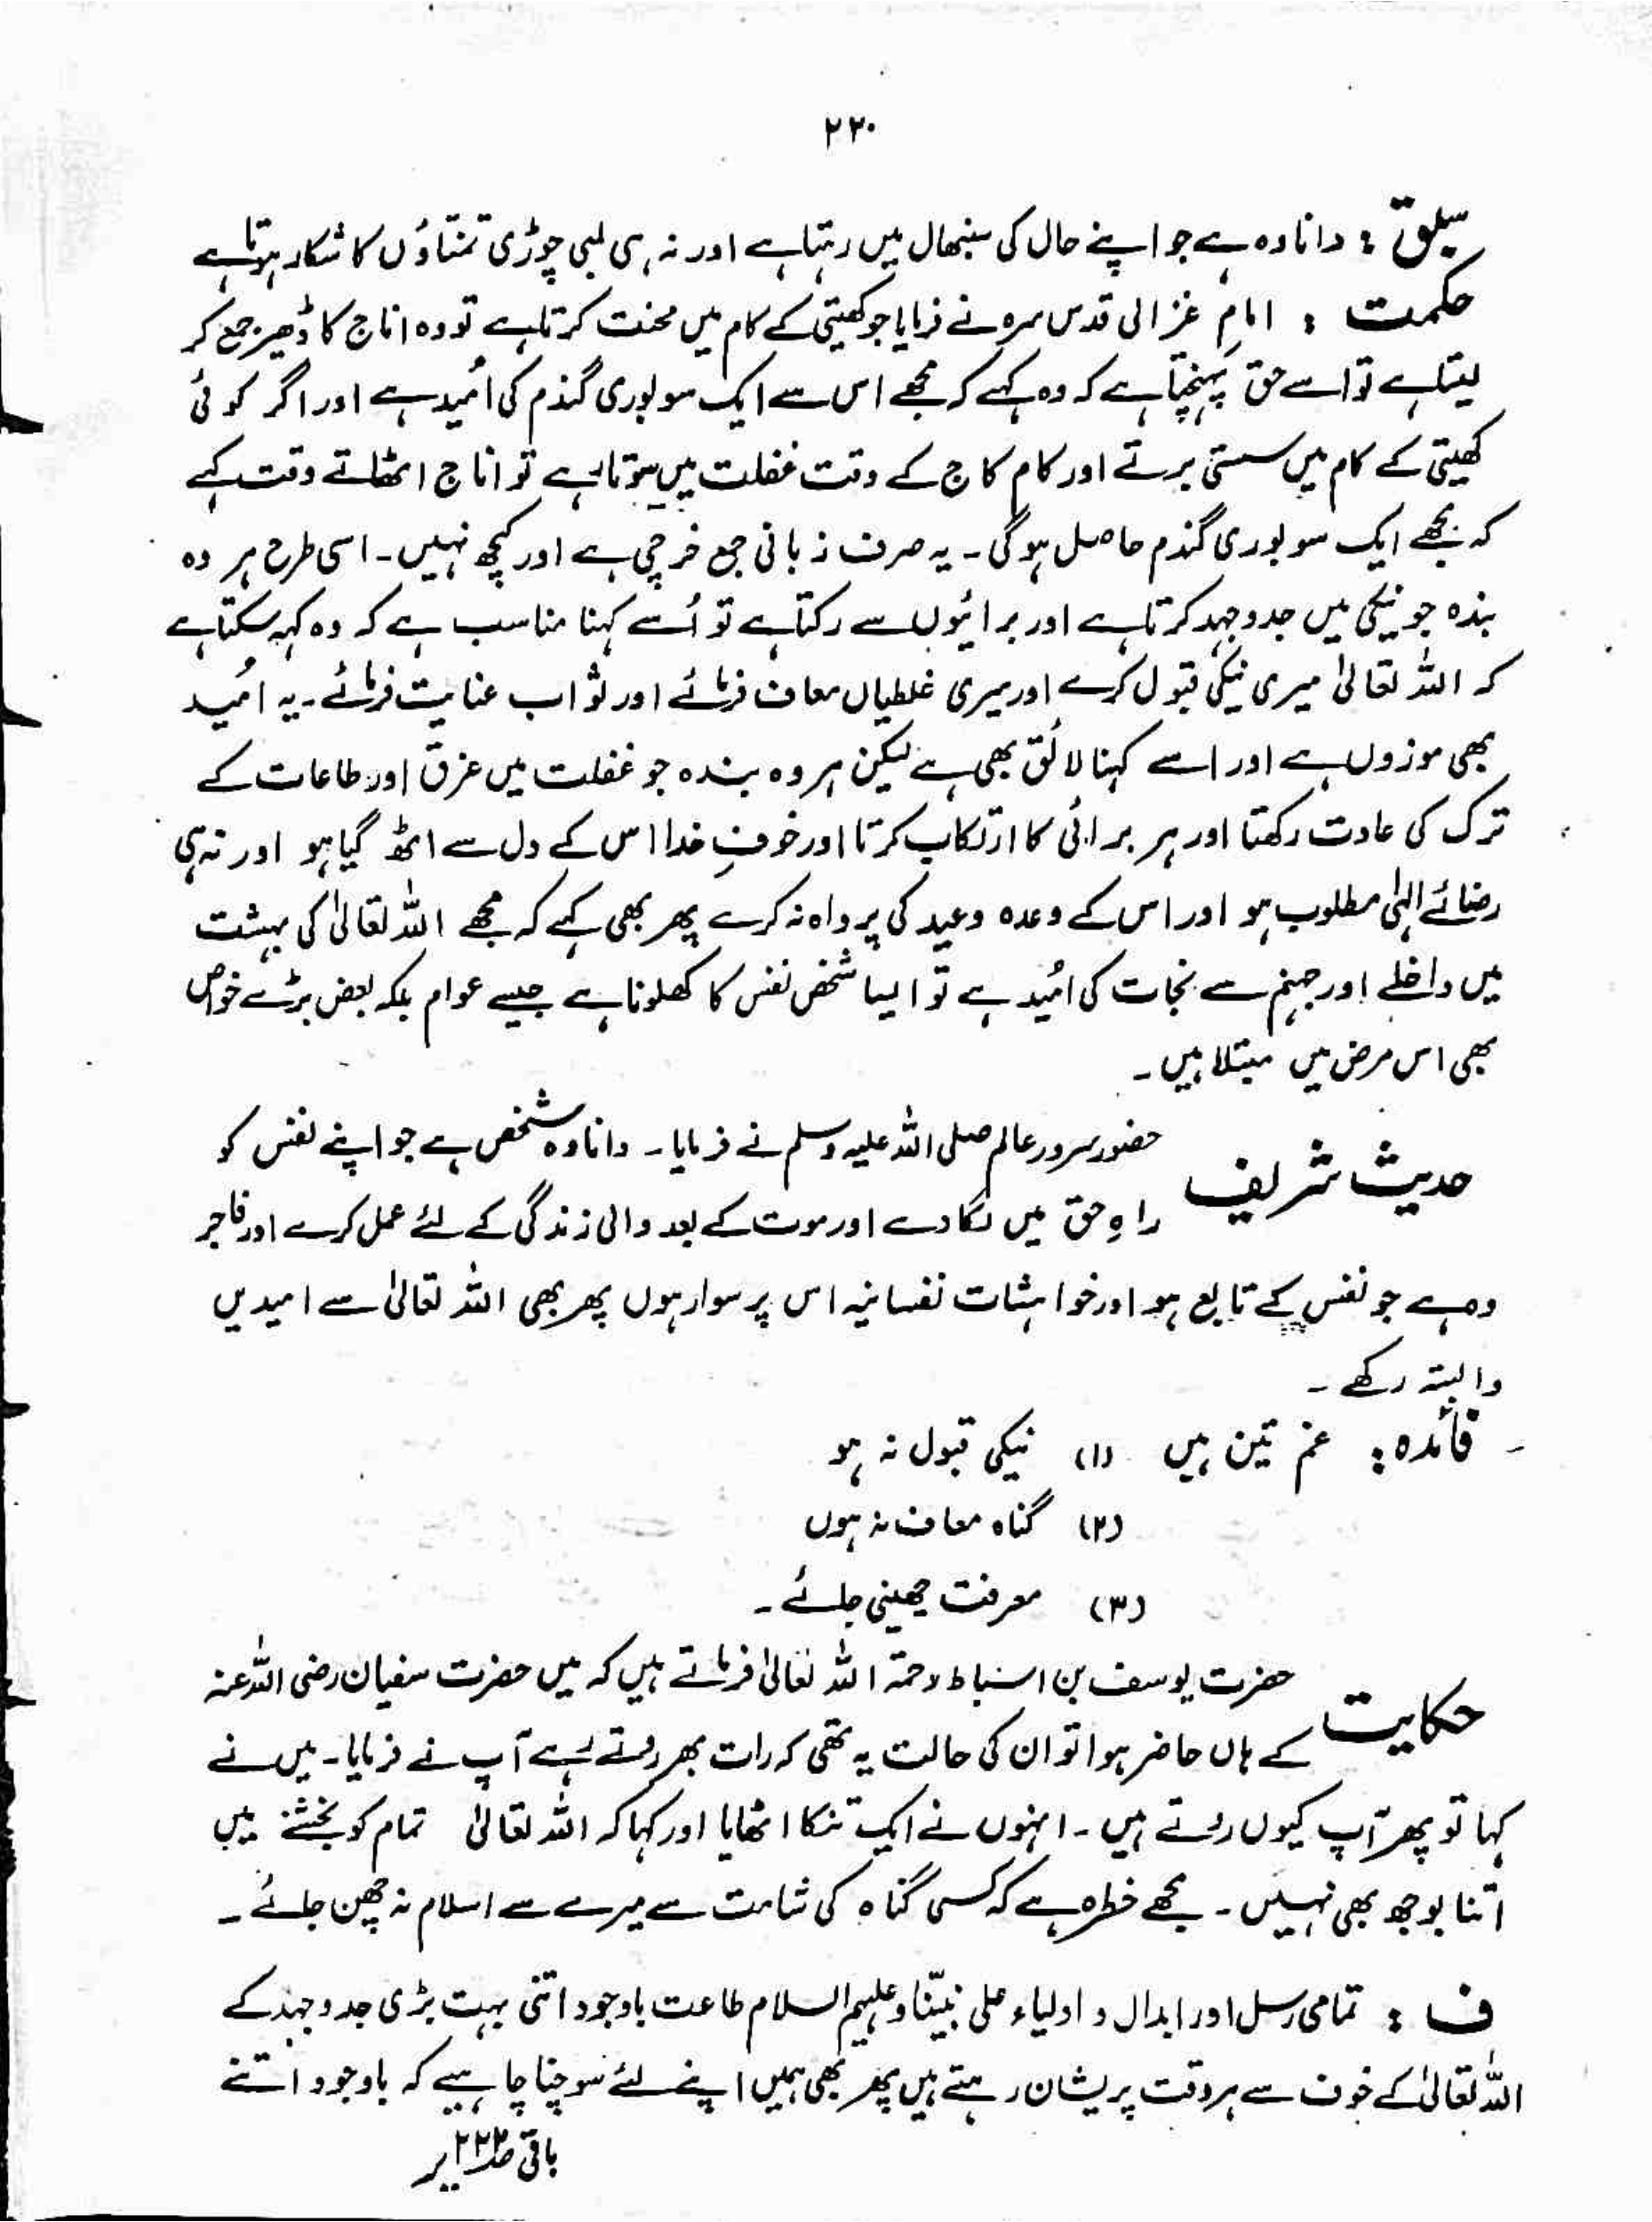 ۲۲۰
سبق : دانا وہ ہے جو اپنے حال کی سنبھال میں رہتا ہے اور نہ ہی لمبی چوڑی تمناؤں کا شکار ہوتا ہے
حکمت : امام غزالی قدس سرہ نے فرمایا جو کھیتی کے کام میں محنت کرتا ہے تو وہ اناج کا ڈھیر جمع کر
لیتا ہے تو اسے حق پہنچتا ہے کہ وہ کہے کہ مجھے اس سے ایک سو بوری گندم کی اُمید ہے اور اگر کوئی
کھیتی کے کام میں سستی برتے اور کام کاج کے وقت غفلت میں سوتا رہے تو اناج اٹھاتے وقت کہے
کہ مجھے ایک سو بوری گندم حاصل ہوگی ۔ یہ صرف زبانی جمع خرچی ہے اور کچھ نہیں ۔ اسی طرح ہر وہ
بندہ جو نیکی میں جدوجہد کرتا ہے اور برائیوں سے رکتا ہے تو اُسے کہنا مناسب ہے کہ وہ کہہ سکتا ہے
کہ اللہ تعالیٰ میری نیکی قبول کرے اور میری غلطیاں معاف فرمائے اور ثواب عنایت فرمائے ۔ یہ اُمید
بھی موزوں ہے اور اسے کہنا لائق بھی ہے لیکن ہر وہ بندہ جو غفلت میں غرق اور طاعات کے
ترک کی عادت رکھتا اور ہر برائی کا ارتکاب کرتا اور خوفِ خدا اس کے دل سے اٹھ گیا ہو اور نہ ہی
رضائے الٰہی مطلوب ہو اور اس کے وعدہ وعید کی پرواہ نہ کرے پھر بھی کہے کہ مجھے اللہ تعالیٰ کی بہشت
میں داخلے اور جہنم سے نجات کی اُمید ہے تو ایسا شخص نفس کا کھلونا ہے جیسے عوام بلکہ بعض بڑے خواص
بھی اس مرض میں مبتلا ہیں ۔
حدیث شریف حضور سرور عالم صلی اللہ علیہ وسلم نے فرمایا ۔ دانا وہ شخص ہے جو اپنے نفس کو
راہِ حق میں لگا دے اور موت کے بعد والی زندگی کے لئے عمل کرے اور فاجر
وہ ہے جو نفس کے تابع ہو اور خواہشات نفسانیہ اس پر سوار ہوں پھر بھی اللہ تعالیٰ سے امیدیں
وابستہ رکھے ۔
فائدہ : غم تین ہیں (۱) نیکی قبول نہ ہو
(۲) گناہ معاف نہ ہوں
(۳) معرفت چھینی جائے ۔
حکایت حضرت یوسف بن اسباط رحمۃ اللہ تعالیٰ فرماتے ہیں کہ میں حضرت سفیان رضی اللہ عنہ
کے ہاں حاضر ہوا تو ان کی حالت یہ تھی کہ رات بھر روتے رہے آپ نے فرمایا ۔ میں نے
کہا تو پھر آپ کیوں روتے ہیں ۔ انہوں نے ایک تنکا اٹھایا اور کہا کہ اللہ تعالیٰ تمام کو بخشنے میں
اتنا بوجھ بھی نہیں ۔ مجھے خطرہ ہے کہ کسی گناہ کی شامت سے میرے سے اسلام نہ چھن جائے ۔
ف : تمامی رسل اور ابدال و اولیاء علی نبیّنا وعلیہم السلام طاعت باوجود اتنی بہت بڑی جدوجہد کے
اللہ تعالیٰ کے خوف سے ہر وقت پریشان رہتے ہیں پھر بھی ہمیں اپنے لئے سوچنا چاہیے کہ باوجود اتنے
باقی صـ۲۲۲ پر